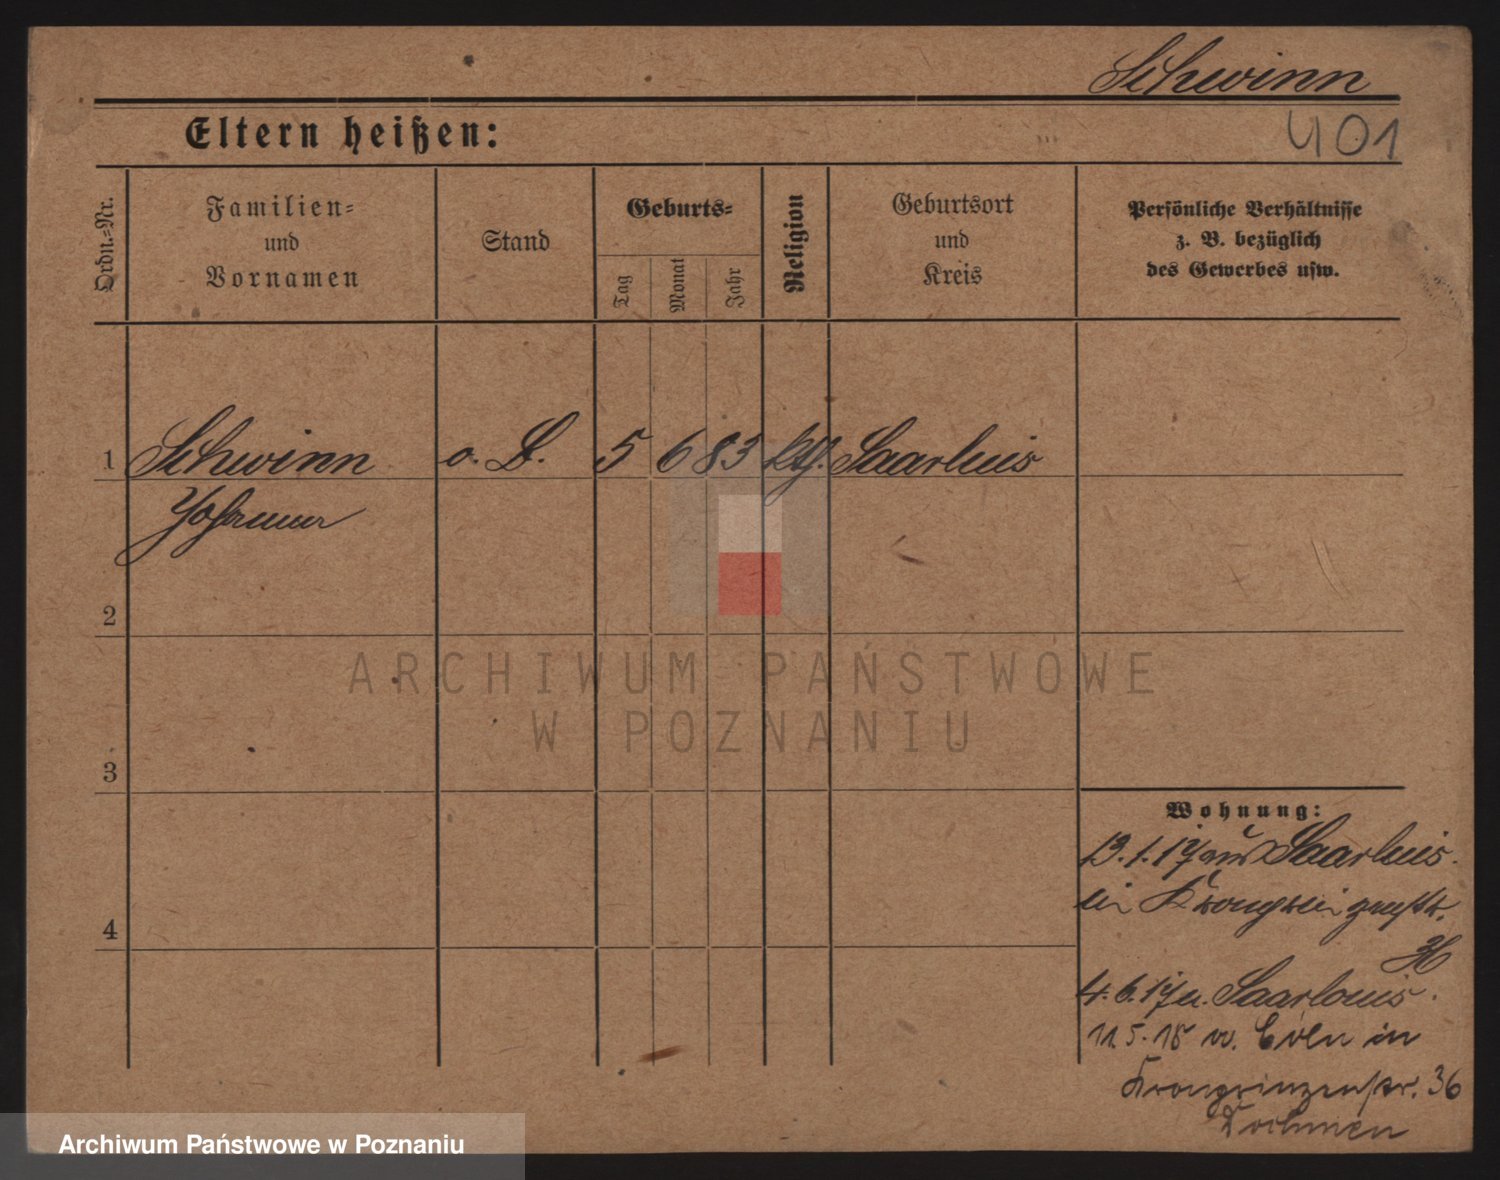 Schwinn
Eltern heißen:
401
Ordn.=Nr.
Familien=
und
Vornamen
Stand
Geburts=
Tag
Monat
Jahr
Religion
Geburtsort
und
Kreis
Persönliche Verhältnisse
z. B. bezüglich
des Gewerbes usw.
1 Schwinn o. B. 5 6 83 kth. Saarluis
2
3
4
Wohnung:
13.1.17 aus Saarluis.
in Kronprinzenstr.
36
4.6.17 n. Saarlouis.
11.5.18 v. Cöln in
Kronprinzenstr. 36
ARCHIWUM PAŃSTWOWE
W POZNANIU
Archiwum Państwowe w Poznaniu